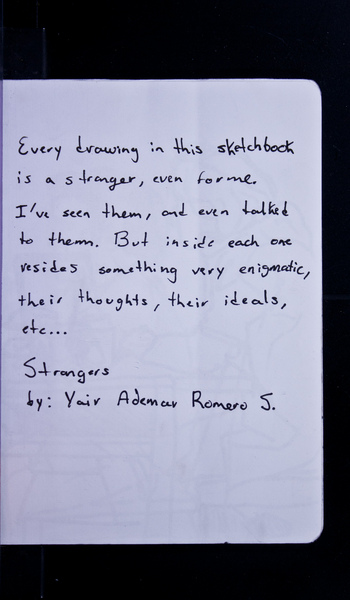 Every drawing in this sketchbook
is a stranger, even for me.
I've seen them, and even talked
to them. But inside each one
resides something very enigmatic,
their thoughts, their ideals,
etc...
Strangers
by: Yair Ademar Romero S.